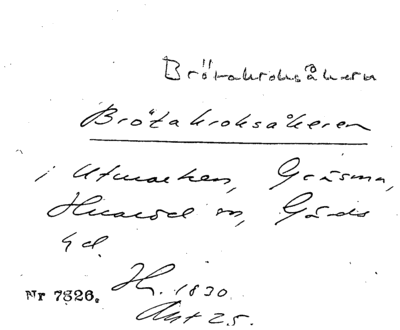 Brötakroksåkern
Brötakroksåkeren
i Utmarken, Gråsma,
Huaröd sn, Gärds
hd.
Nr 7326. H. 1830
Akt 25.